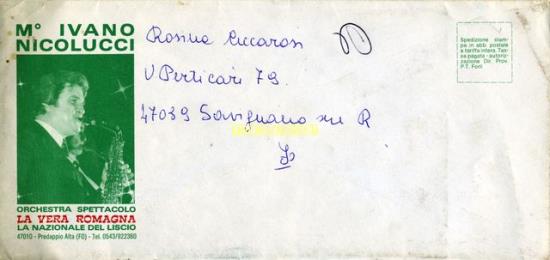 M° IVANO
NICOLUCCI
ORCHESTRA SPETTACOLO
LA VERA ROMAGNA
LA NAZIONALE DEL LISCIO
47010 - Predappio Alta (FO) - Tel. 0543/922360
V Perticari 79
47039 Savignano sul R
Spedizione stam-
pe in abb. postale
a tariffa intera. Tas-
sa pagata - autoriz-
zazione Dir. Prov.
P.T. Forlì